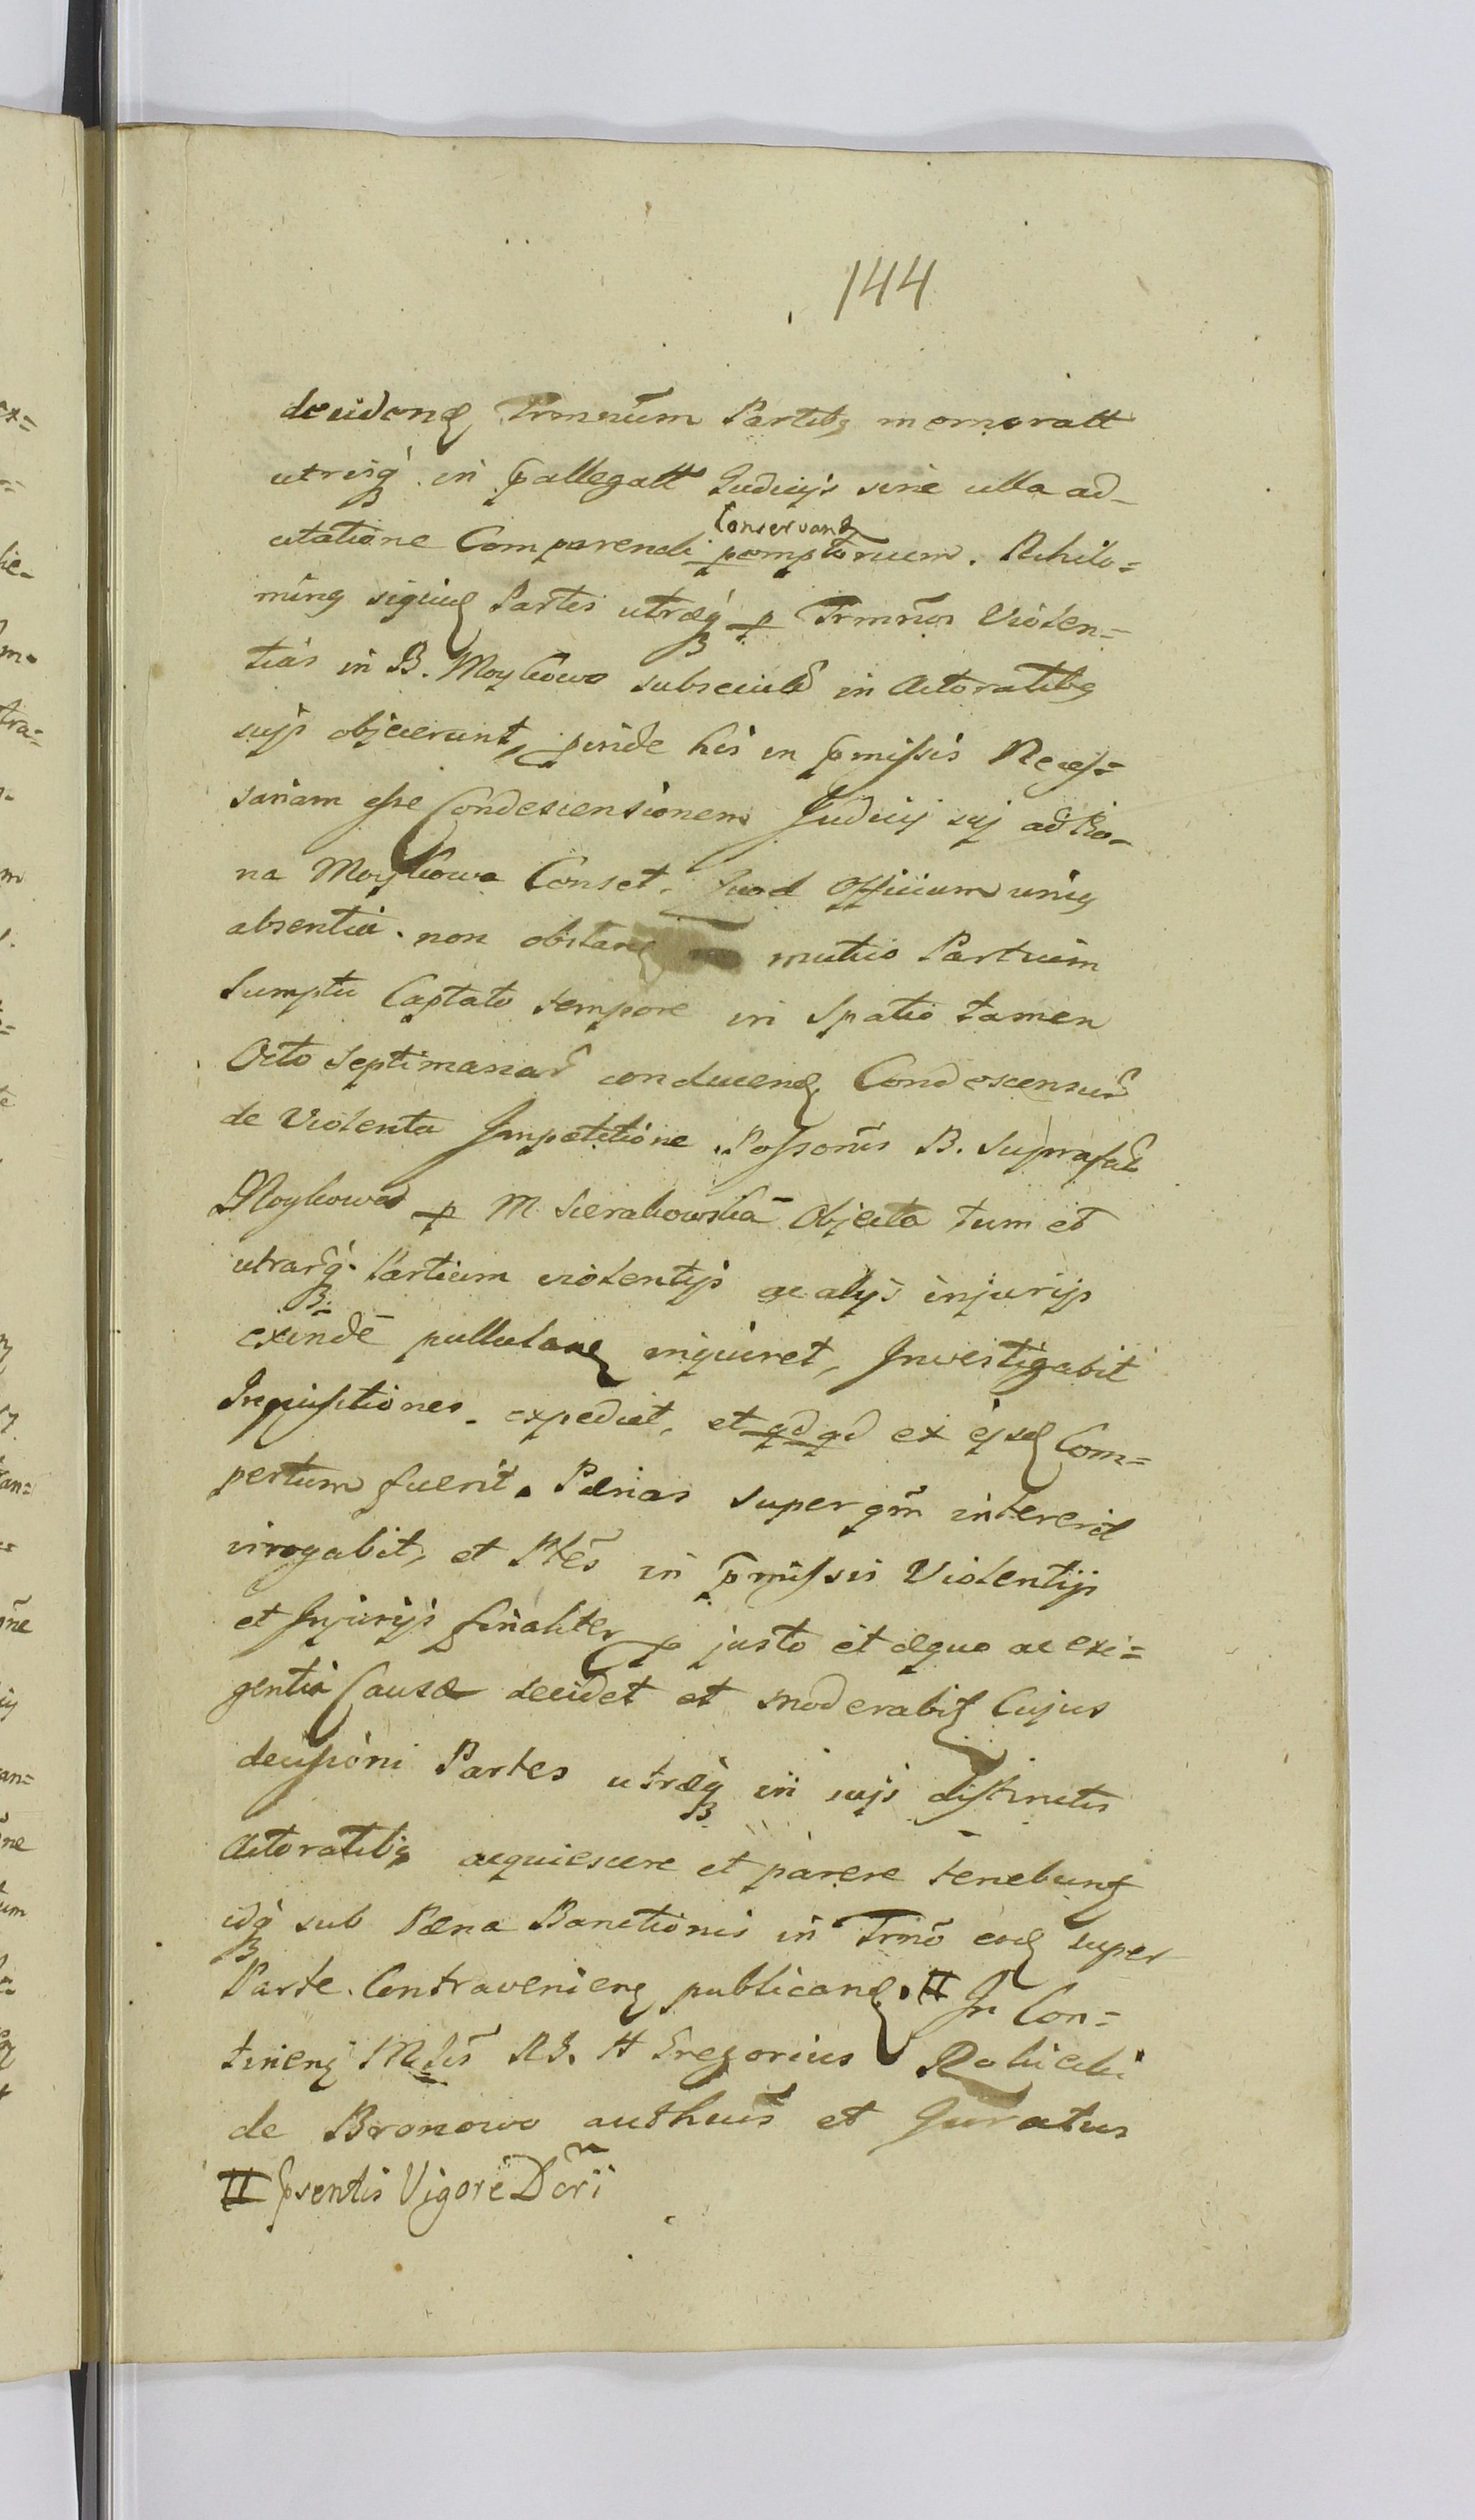 144
decidend Trmnum Partibq memoratt
utrisq in pallegatt Judicijs sine ulla ad-
citatione Comparendi Conservand pemptorium. Nihilo=
minq siquid Partes utræq p Trmnos Violen=
tias in B. Moykowo subsecuta in Actoratibq
sujs objecerunt, pinde his in pmissis Necess=
sariam esse Condescensionem Judicij suj ad Bo-
na Moykowo Conset. Quod Officium uniq
absentia non obstand mutuo Partium
Sumptu Captato tempore in Spatio tamen
Octo Septimanar conducend Condescensur
de Violenta Impetitione Possonis B. Suprafat
Moykowo p M. Sierakowską Objecta tum et
utrarq Partium violentijs ac alijs injurijs
exinde pulluland inquiret, Investigabit
Inquisitiones expediet, et qdqd ex ejsd Com=
pertum fuerit. Pænas super qm intererit
irrogabit, et Ptes in pmissis Violentijs
et Injurijs finaliter p justo et æquo ac exi=
gentia Causæ decidet et moderabit Cujus
decisioni Partes utræq in sujs distinctis
Actoratibq acquiescere et parere tenebunt
idq sub Pæna Bannitionis in Trmo eod super
Parte Contravenient publicand. # In Con=
tinent Mtis RJ. H Gregorius
de Bronowo authus et Juratus
# psentis Vigore Dcri